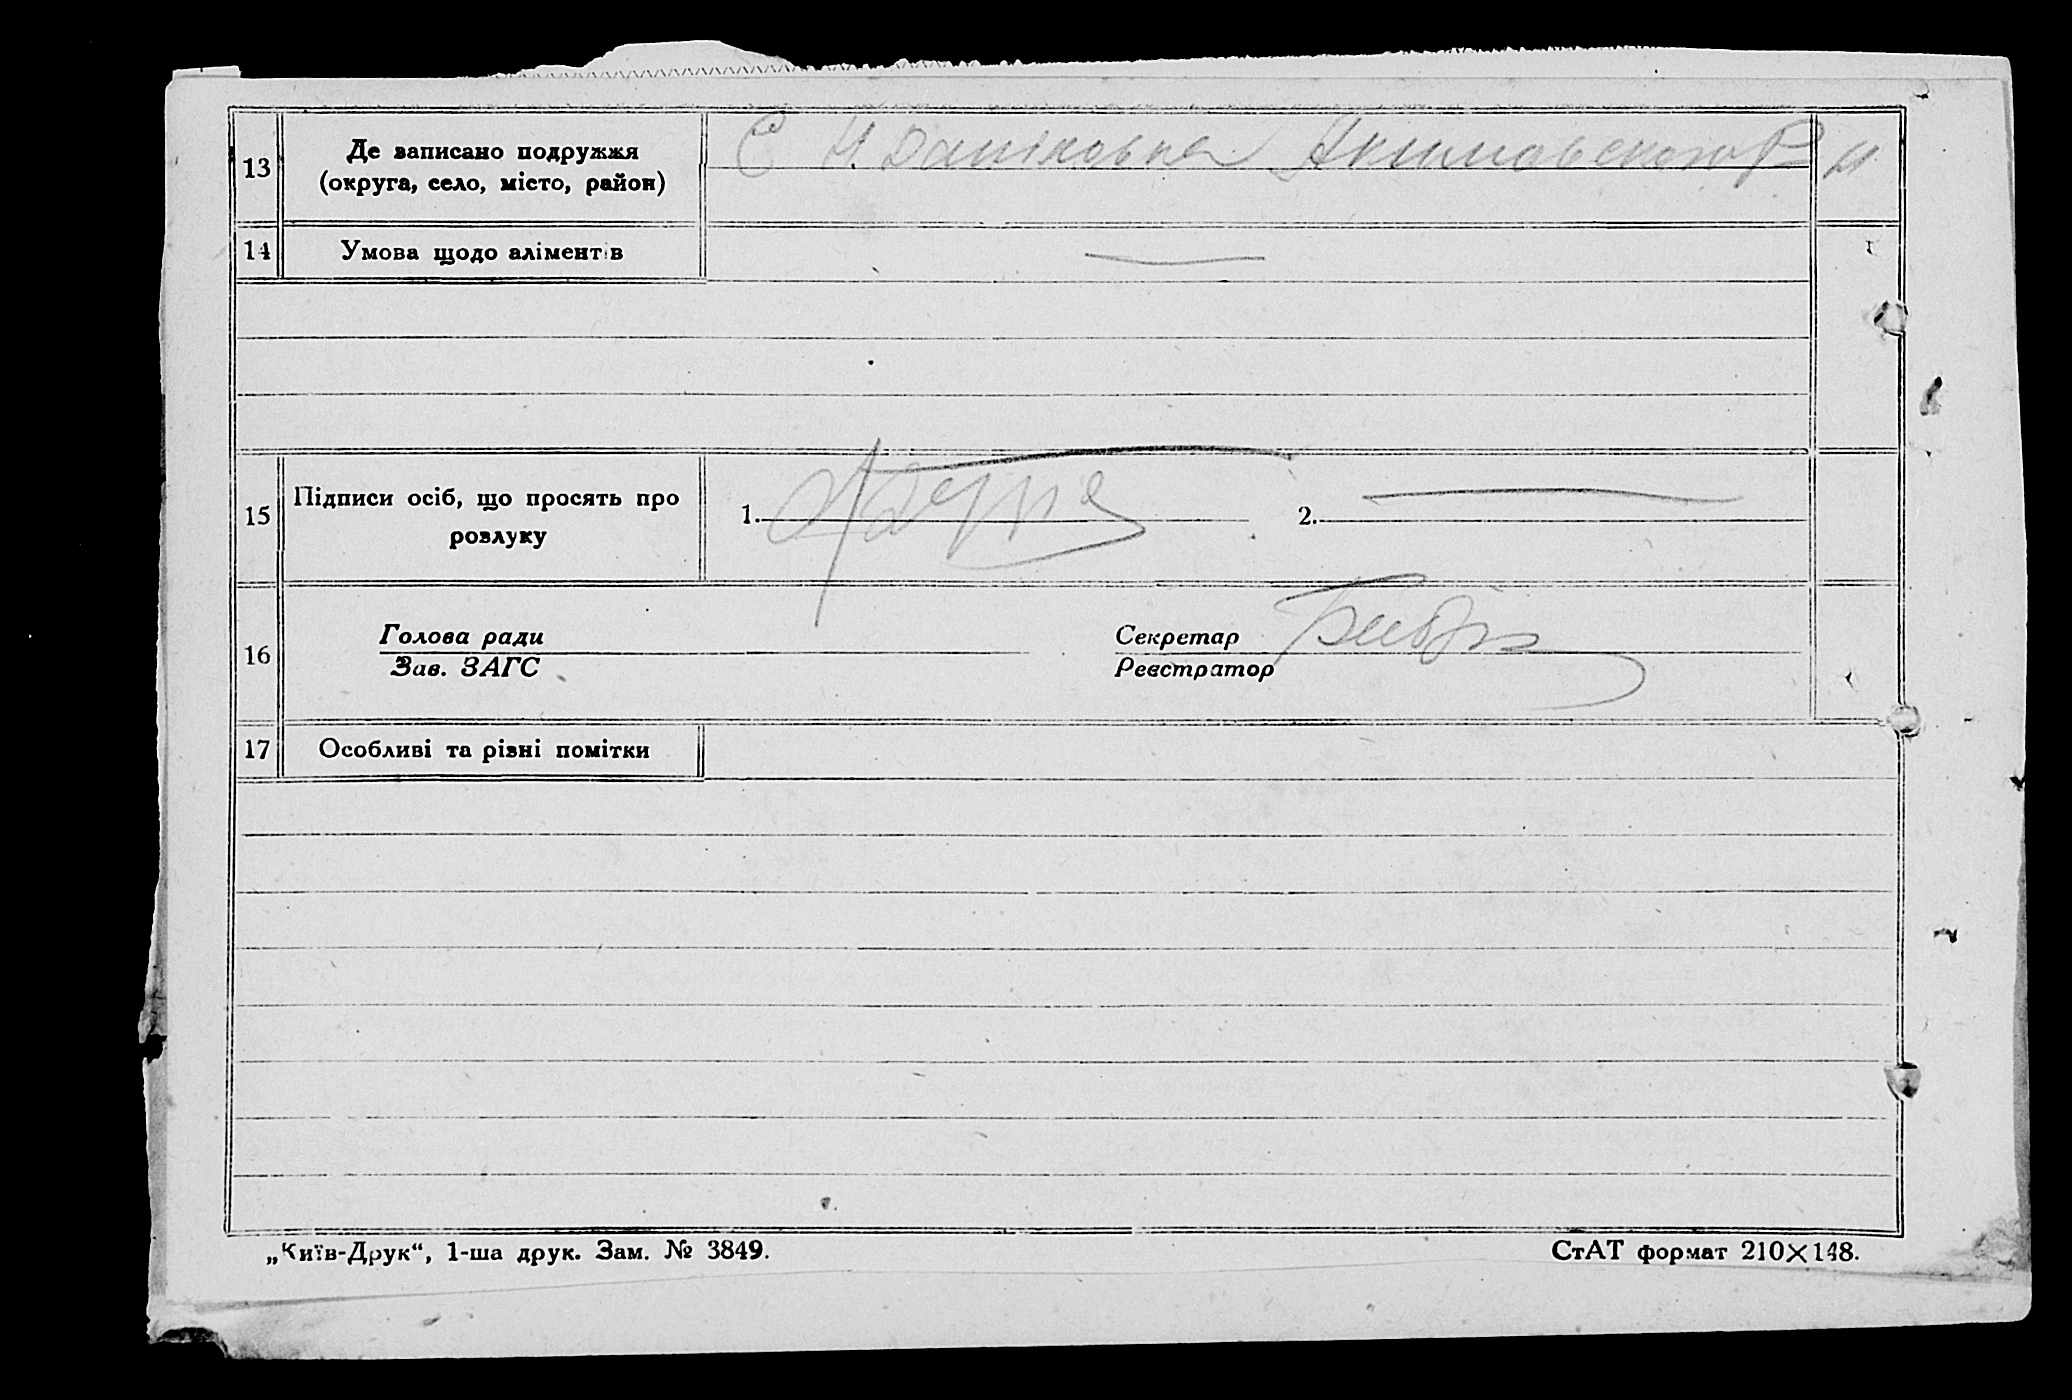 13 Де записано подружжя
(округа, село, місто, район)
С Н. Даниловка Акимовского Р н
14 Умова щодо аліментів
15 Підписи осіб, що просять про
розлуку
1. 2.
16 Голова ради Секретар
Зав. ЗАГС Реєстратор
17 Особливі та різні помітки
„Київ-Друк“, 1-ша друк. Зам. № 3849. СтАТ формат 210×148.